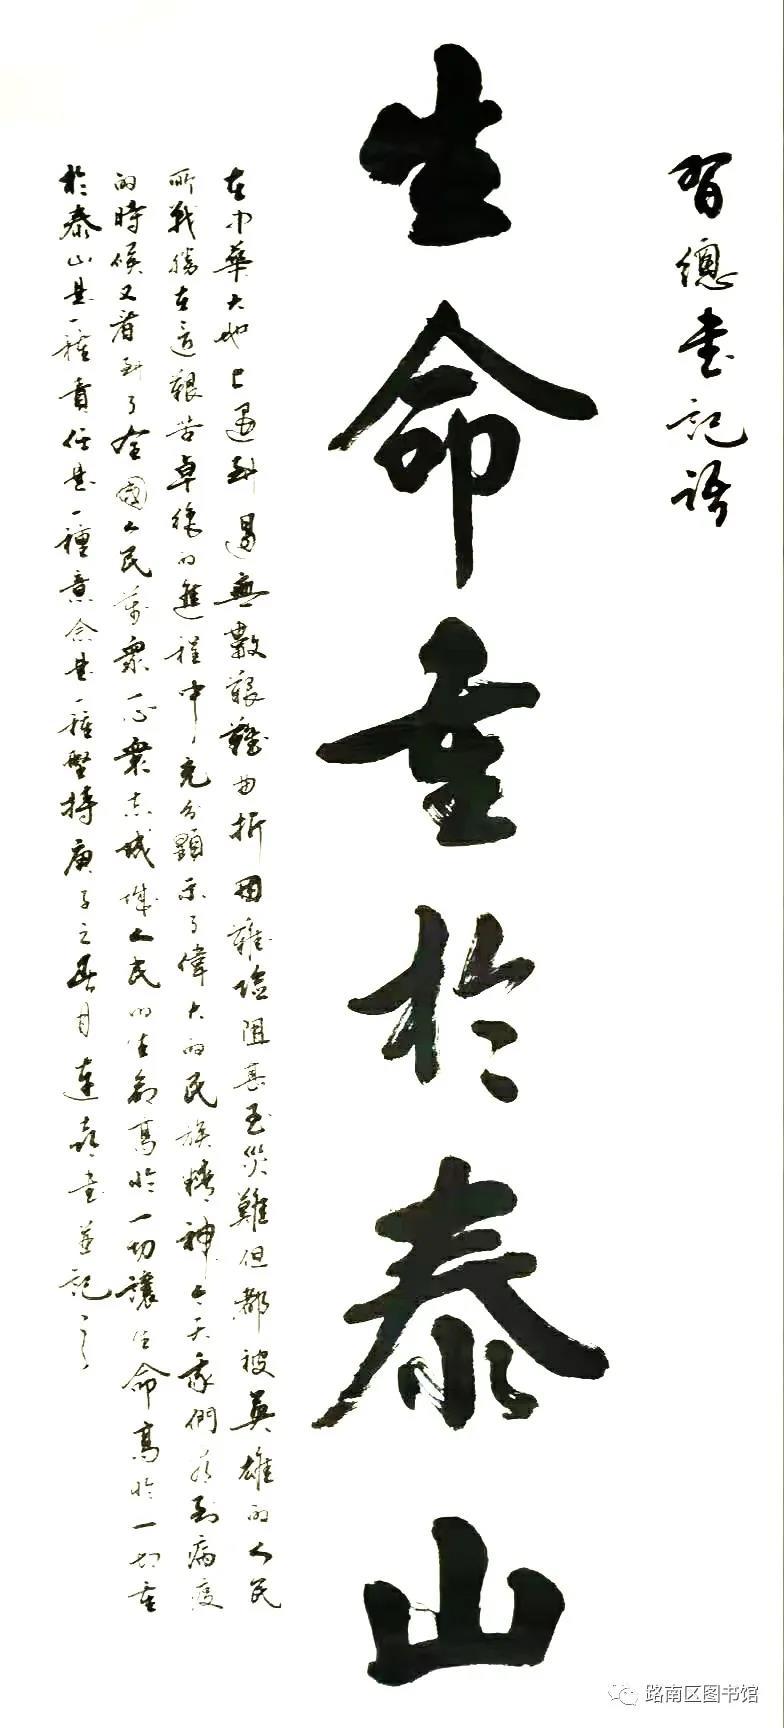 習總書記語
生命重於泰山
在中華大地上遇到過無數艱難曲折困難險阻甚至災難但都被英雄的人民
所戰勝在這艱苦卓絕的進程中充分顯示了偉大的民族精神今天我們到病疫
的時候又看到了全國人民萬眾一心眾志成城人民的生命高於一切讓生命高於一切重
於泰山是一種責任是一種意念是一種堅持庚子之春月連喜書並記之
路南区图书馆